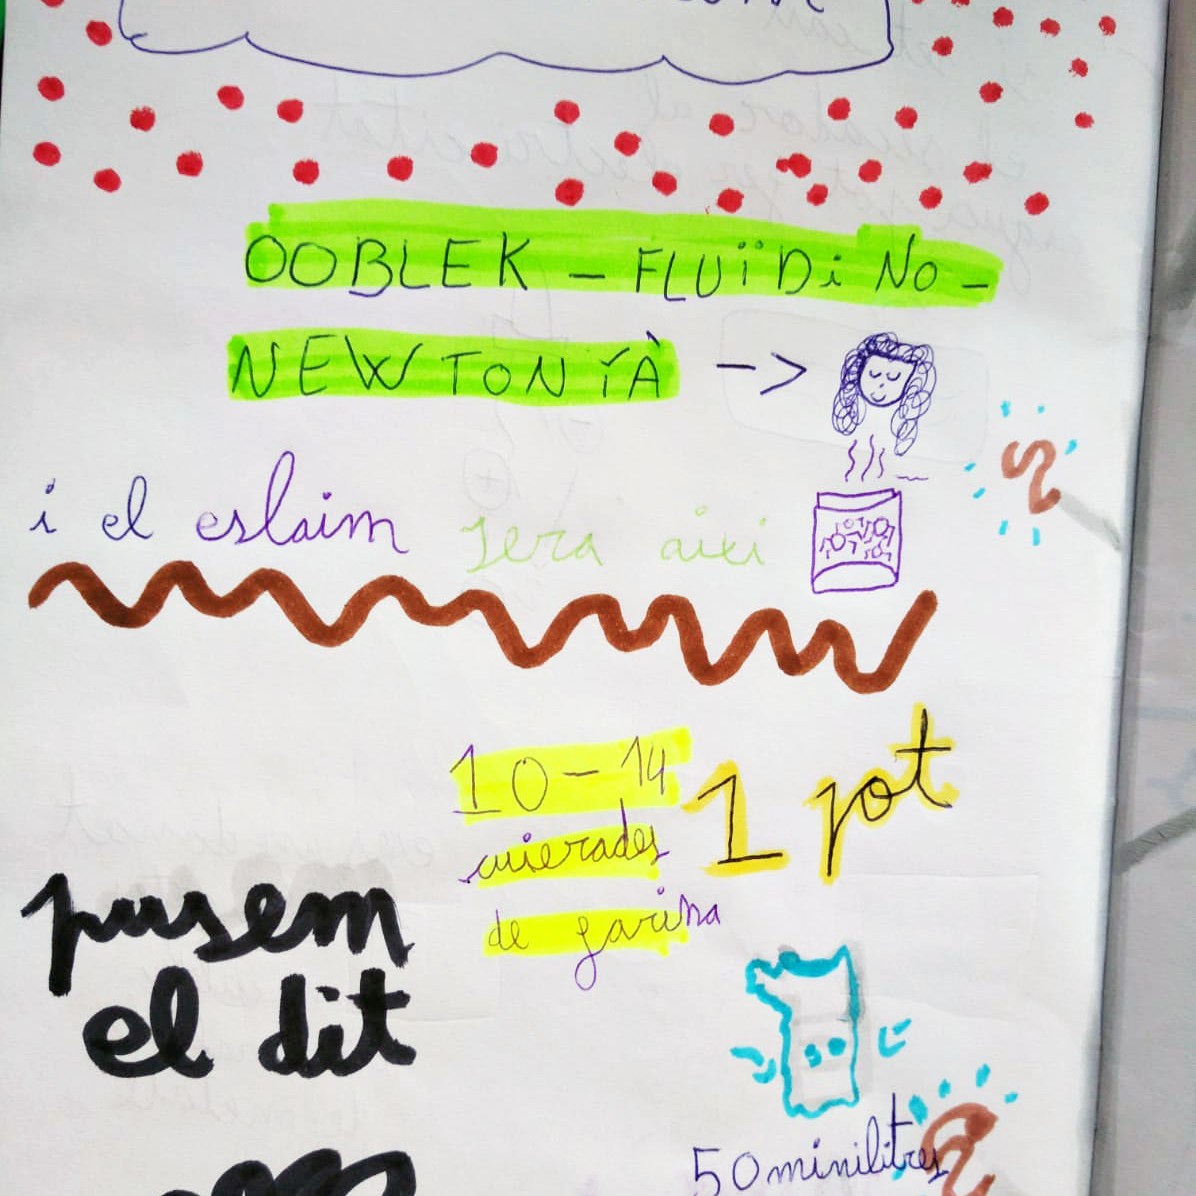 OOBLEK - FLUÏDi NO -
NEWTONIÀ ->
i el eslaim sera aixi
10-14
cuierades
de farina
1 pot
pusem
el dit
50 minilitres